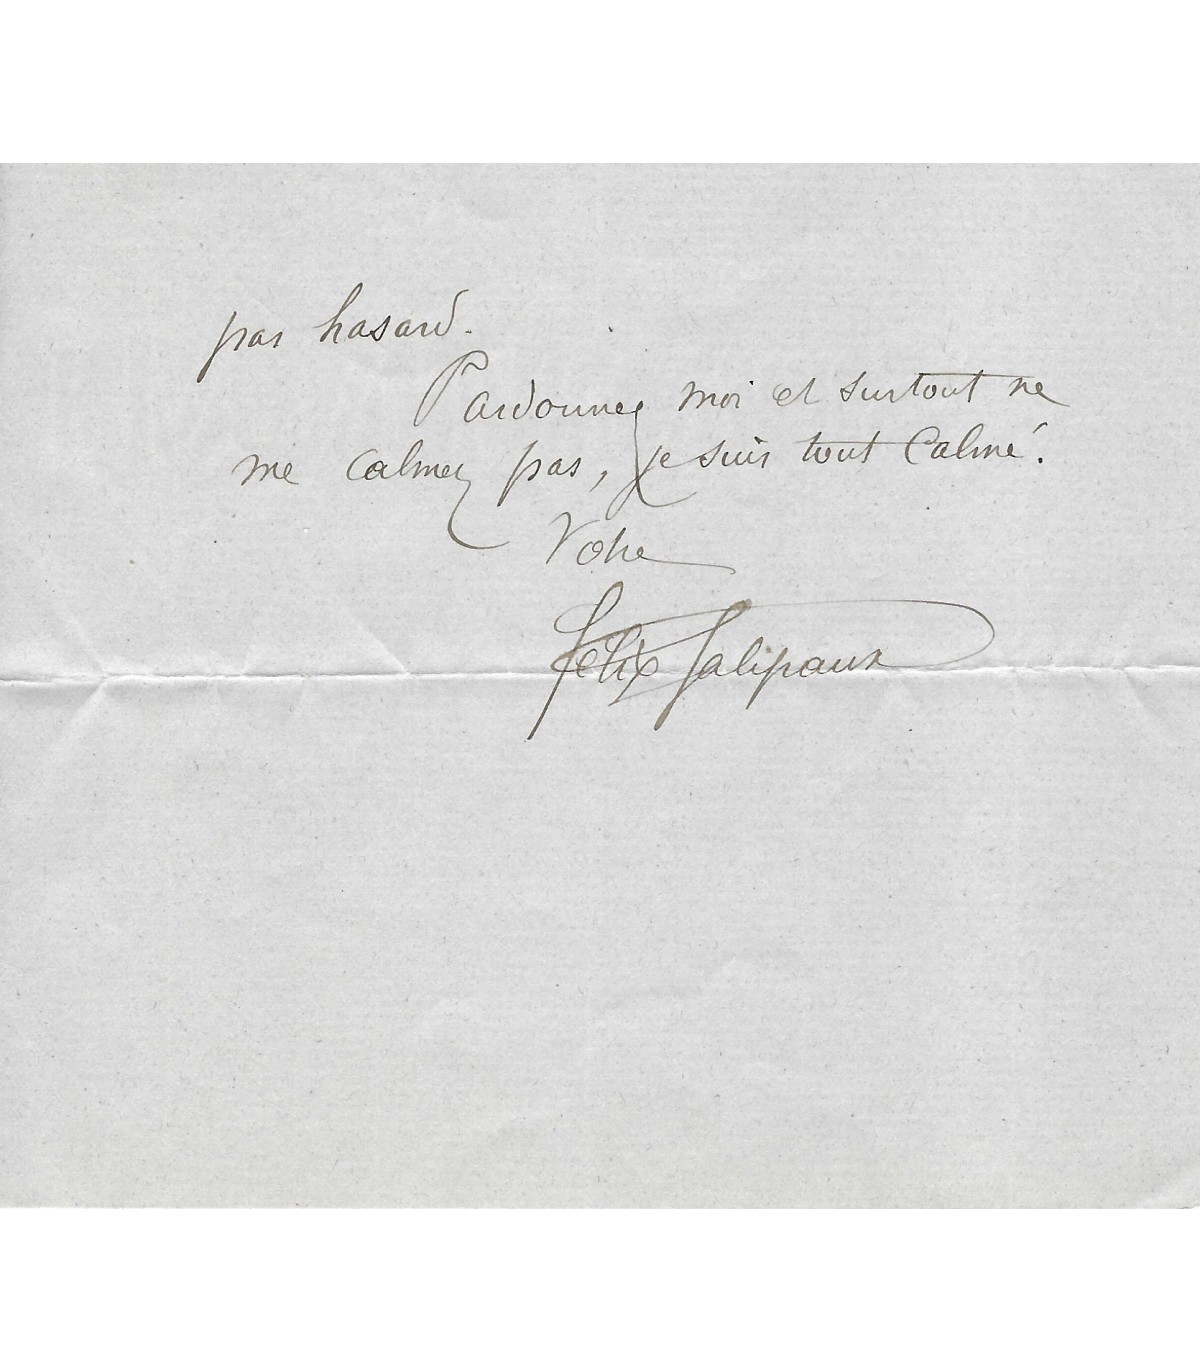 par hasard.
Pardonnez moi et surtout ne
me calmez pas, je suis tout calmé!
Votre
Félix Galipaux